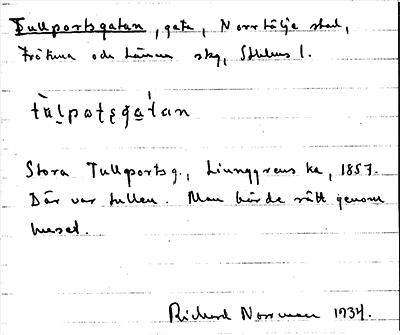 Tullportsgatan, gata, Norrtälje stad,
Frötuna och Länna skg, Sthlms l.
Stora Tullportsg., Ljunggrens ka, 1857.
Där var tullen. Man körde rätt genom
huset.
Richard Norrman 1934.